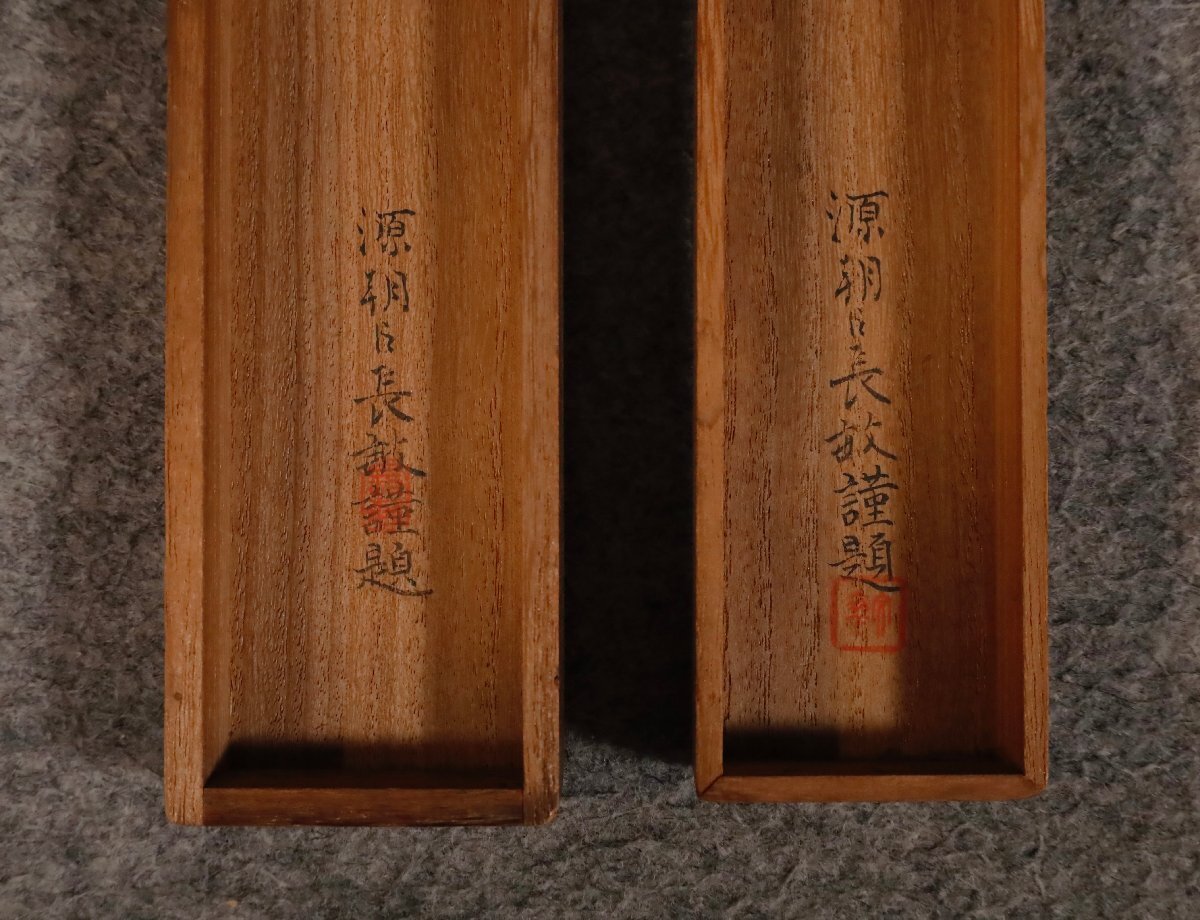 源朝臣長敬謹題
源朝臣長敬謹題